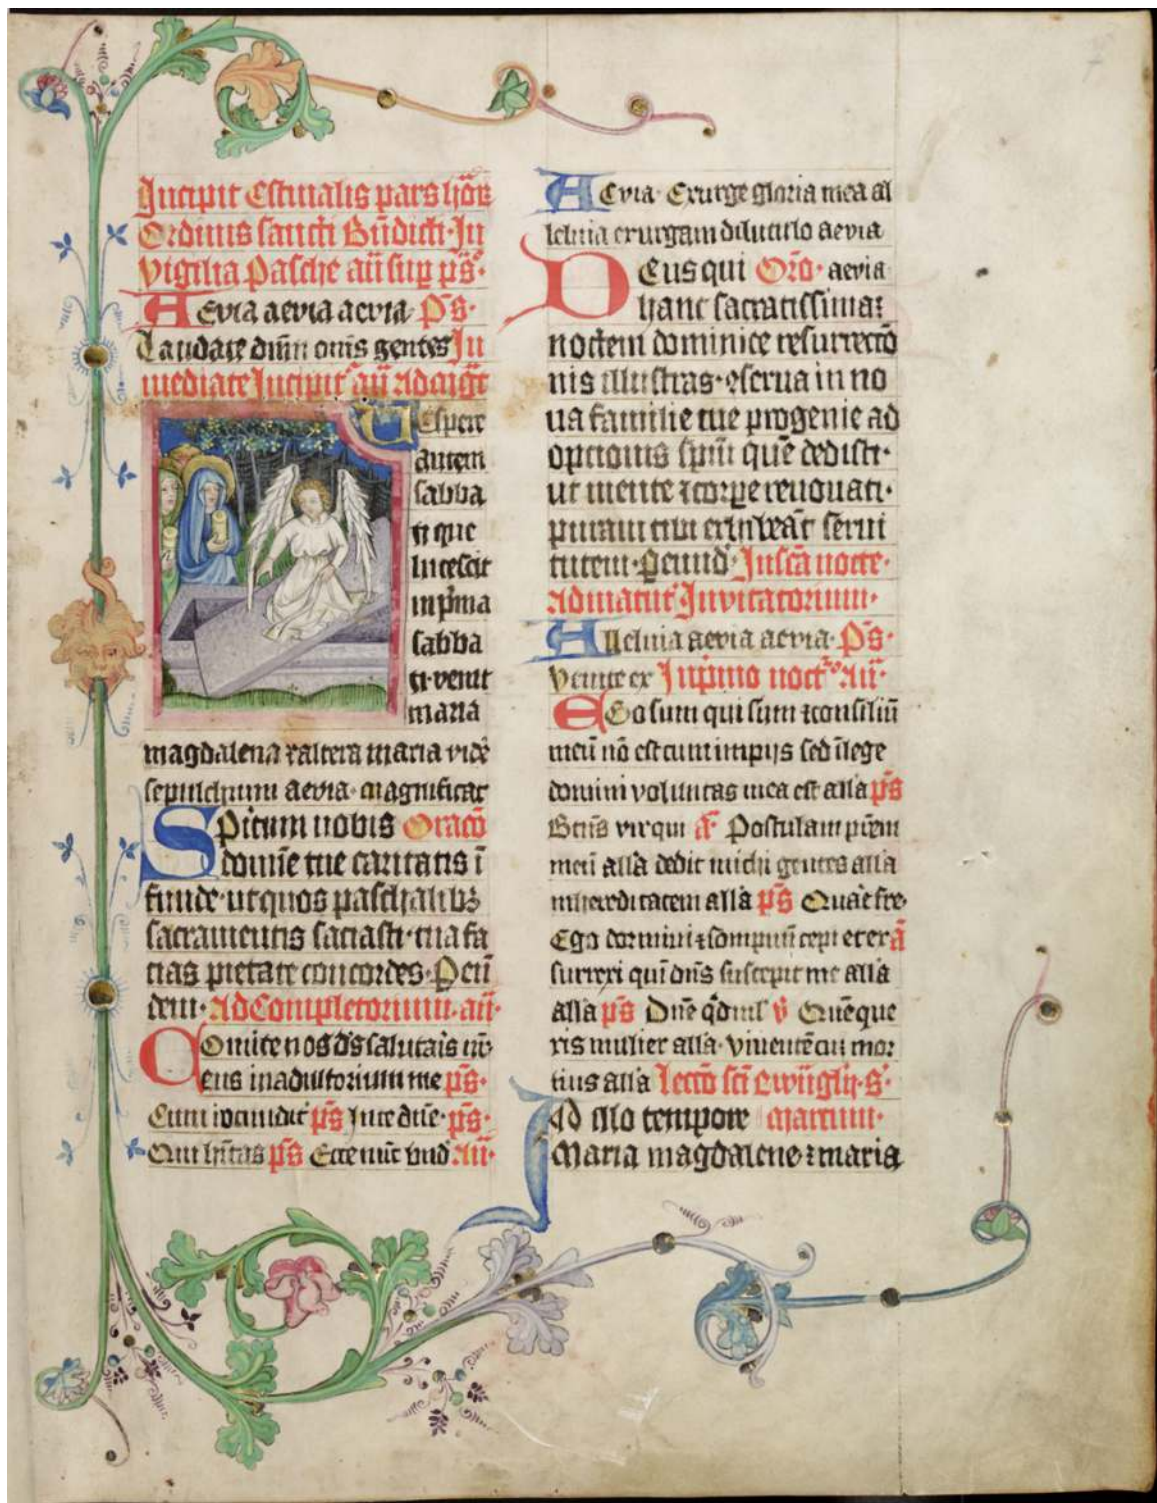 Incipit Estiualis pars horz
Ordinis sancti Bn̄dicti. In
vigilia Pasche an̄ sup ps̄.
Aevia aevia aevia ps̄.
Laudate dn̄m om̄s gentes In
mediate Incipit an̄ ad mgt
Uespere
autem
sabba
ti que
lucescit
in p̄ma
sabba
ti venit
maria
magdalena ⁊ altera maria vidē
sepulchrum aevia. magnificat
Spiritum nobis Oracō
domīe tue caritatis ī
funde. ut quos paschalibꝫ
sacramentis saciasti. tua fa
cias pietate concordes. Per eū
dem. Ad Completorium. an̄.
Conuite nos ds̄ salutaīs nr̄
eus in adiutorium me ps̄.
Cum īvocarē ps̄ In te dn̄e. ps̄.
Qui hītas ps̄ Ecce nūc bnd̄ An̄.
Aevia. Exurge gloria mea al
leluia exurgam diluculo aevia
Deus qui Orō. aevia
hanc sacratissimaꝫ
noctem dominice resurrectō
nis illustras. ɔserua in no
ua familie tue progenie ad
optionis spm̄ quē dedisti.
ut mente ⁊ corꝑe renouati.
puram tibi exhibeāt serui
tutem. Per eund̄. In scā nocte.
Ad matut̄. Inuitatorium.
Alleluia aevia aevia. Ps̄.
Venite ex In p̄imo noct̄ō An̄.
Ego sum qui sum ⁊ consiliū
meū nō est cum impijs sed ī lege
domini voluntas mea est all̄a ps̄
Btūs vir qui ā. Postulaui pr̄em
meū all̄a dedit michi gentes all̄a
in hereditatem all̄a ps̄ Quare fre.
Ego dormiui ⁊ sompnū cepi et ex ā
surrexi qm̄ dn̄s suscepit me all̄a
all̄a ps̄ Dn̄e qd̄ ml̄ v̄ Quē que
ris mulier all̄a. viuentē cū mor
tuis all̄a Lectō scī ewāglij. S.
In illo tempore marcum.
Maria magdalene ⁊ maria